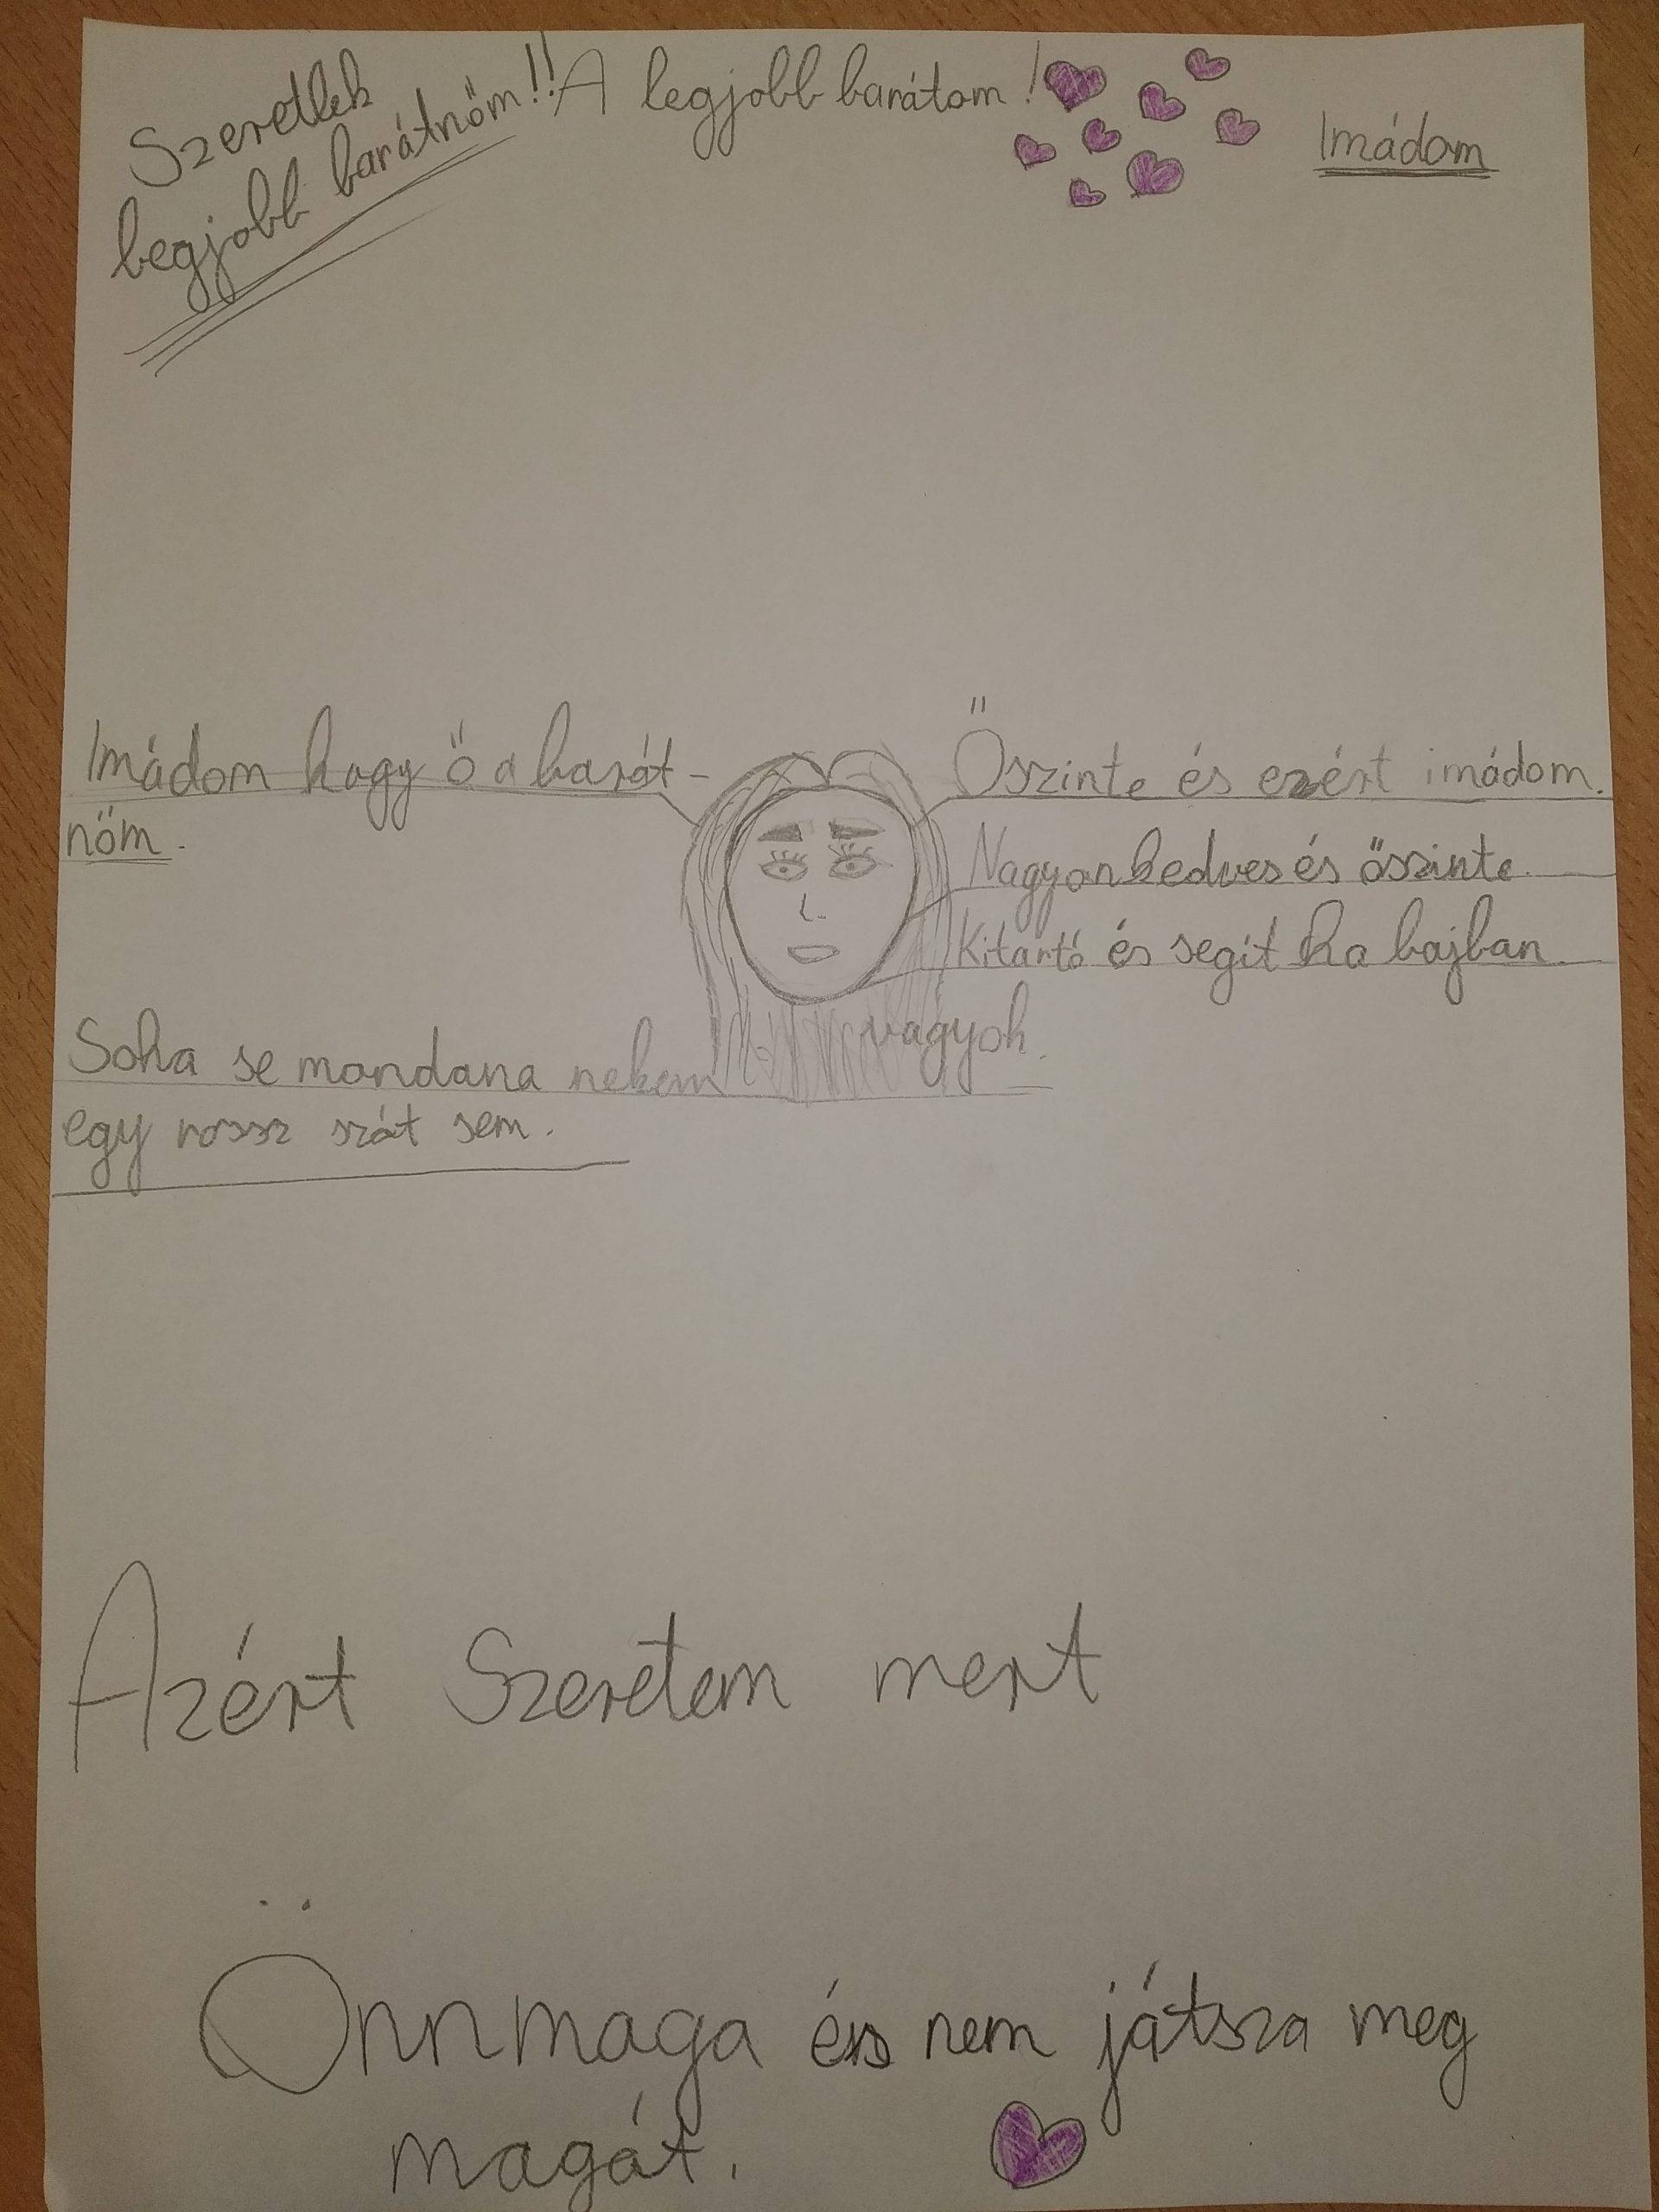 Szeretlek
legjobb barátnőm!!
A legjobb barátom!
Imádom
Imádom hogy ő a barát-
nőm.
Őszinte és ezért imádom.
Nagyon kedves és őszinte
Kitartó és segít ha bajban
vagyok.
Soha se mondana nekem
egy rossz szót sem.
Azért Szeretem mert
Önnmaga és nem játsza meg
magát.